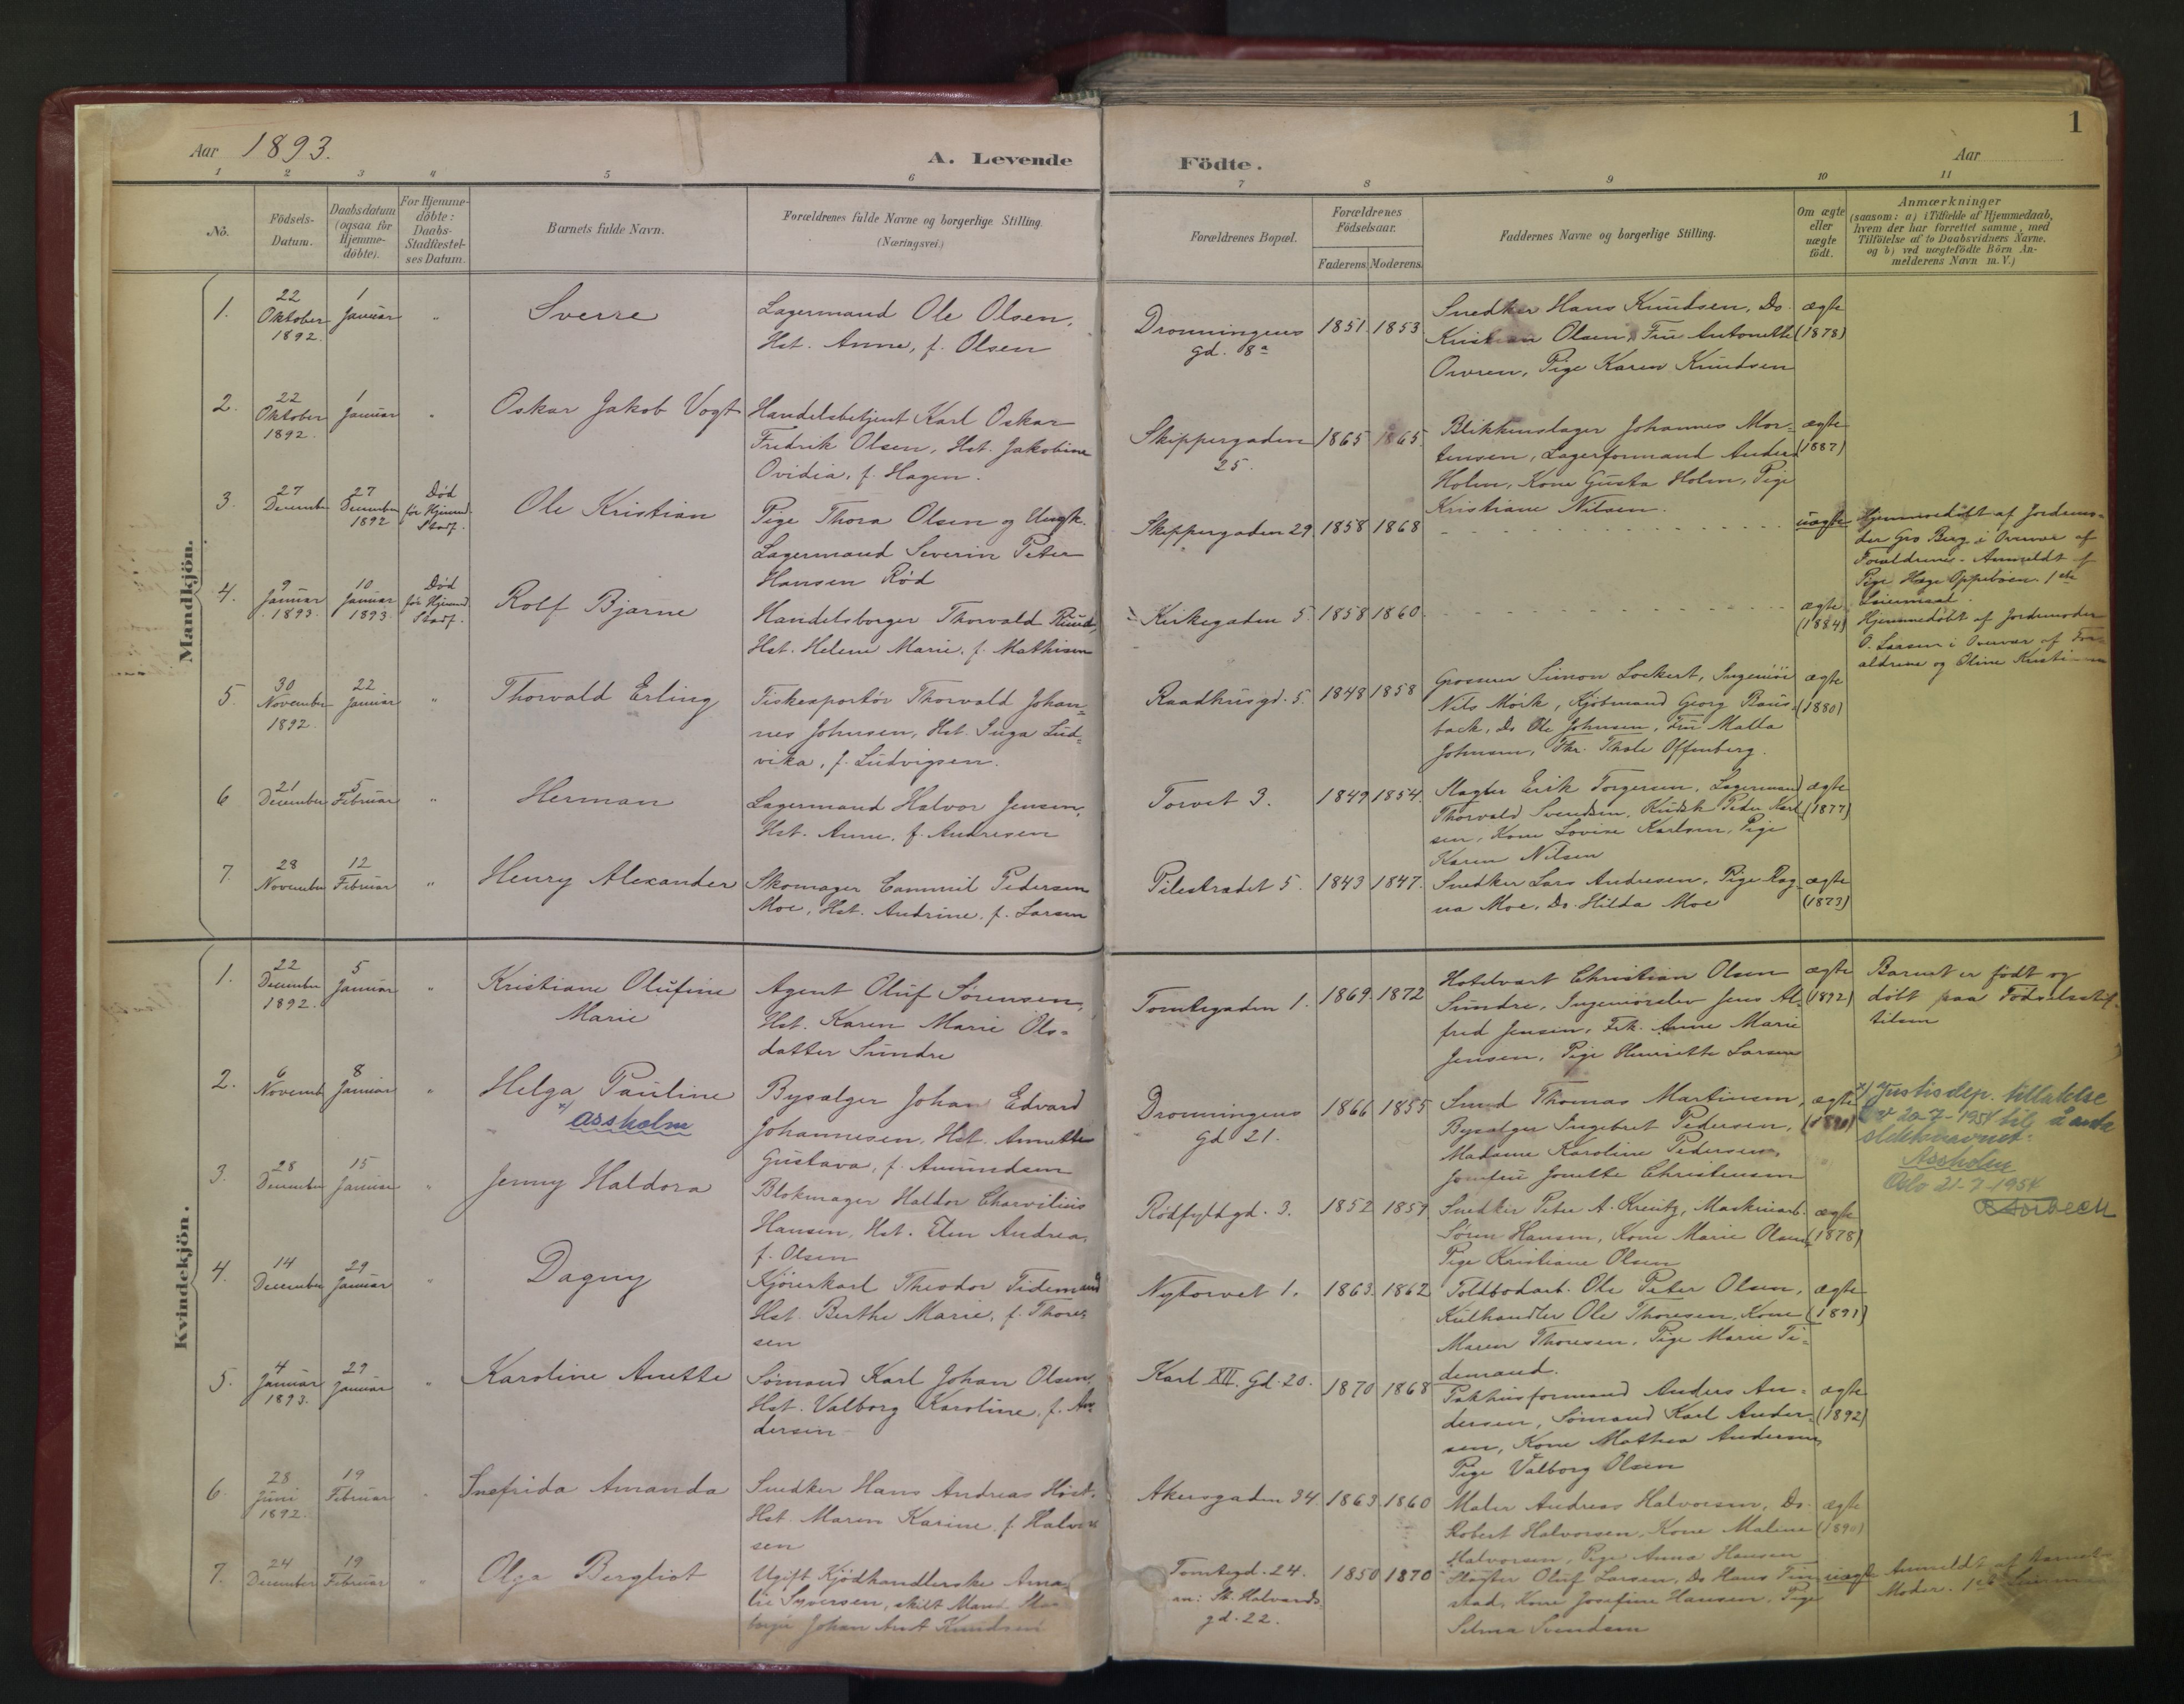 1
Aar 1893.
A. Levende
Födte.
Aar
1 2 3 4 5 6 7 8 9 10 11
No.
Födsels-
Datum.
Daabsdatum
(ogsaa for
Hjemme-
döbte).
For Hjemme-
döbte:
Daabs-
Stadfæstel-
ses Datum.
Barnets fulde Navn.
Forældrenes fulde Navne og borgerlige Stilling.
(Næringsvei.)
Forældrenes Bopæl.
Forældrenes
Födselsaar.
Faderens Moderens
Faddernes Navne og borgerlige Stilling.
Om ægte
eller
uægte
födt.
Anmærkninger
(saasom: a) i Tilfælde af Hjemmedaab,
hvem der har forrettet samme, med
Tilföielse af to Daabsvidners Navne,
og b) ved uægtefödte Börn An-
melderens Navn m. V.)
Mandkjön.
1.
22
Oktober
1892.
1
Januar
"
Sverre
Lagermand Ole Olsen,
Hst. Anne, f. Olsen
Dronningens
gd. 8a
1851 1853
Snedker Hans Knudsen, Do.
Kristian Olsen, Fru Antonette
Owren, Pige Karen Knudsen
ægte
(1878)
2.
22
Oktober
1892.
1
Januar
"
Oskar Jakob Vogt
Handelsbetjent Karl Oskar
Fredrik Olsen, Hst. Jakobine
Ovidia, f. Hagen.
Skippergaden
25.
1865 1865
Blikkenslager Johannes Mor-
tensen, Lagerformand Anders
Holm, Kone Gusta Holm, Pige
Kristiane Nilsen.
ægte
(1887)
3.
27
December
27
December
1892
Død
før Hjemmed.
Stadf.
Ole Kristian
Pige Thora Olsen og Ungk.
Lagermand Severin Peter
Hansen Rød
Skippergaden 29
1858 1868
uægte
Hjemmedøbt af Jordemo-
der Gro Berg i Overvær af
Forældrene. Anmeldt af
Pige Hege Oppebøen. 1ste
Leiermaal.
4.
9
Januar
1893.
10
Januar
1893
Død
før Hjemmed.
Stadf.
Rolf Bjarne
Handelsborger Thorvald Ruud,
Hst. Helene Marie, f. Mathisen
Kirkegaden 5.
1858 1860.
ægte
(1884)
Hjemmedøbt af Jordemoder
O. Larsen i Overvær af For-
ældrene og Oline
5.
30
November
1892.
22
Januar
"
Thorvald Erling
Fiskexportør Thorvald Johan-
nes Johnsen, Hst. Inga Lud-
vika, f. Ludvigsen.
Raadhusgd. 5.
1848 1858
Grosserer Simon Lockert, Ingeniör
Nils Mörk, Kjöbmand Georg Baus-
back, Do Ole Johnsen, Fru Malla
Johnsen, Thale Offenberg.
ægte
(1880)
6
21
December
5
Februar
"
Herman
Lagermand Halvor Jensen,
Hst. Anne, f. Andresen
Torvet 3.
1849 1854.
Slagter Erik Torgersen, Lagermand
Thorvald Svendsen, Kudsk Peder Karl-
sen, Kone Lovise Karlsen, Pige
Karen Nilsen
ægte
(1877)
7.
28
November
12
Februar
"
Henry Alexander
Skomager Cammil Pedersen
Moe, Hst. Andrine, f. Larsen
Pilestrædet 5.
1843 1847.
Snedker Lars Andresen, Pige Rag-
na Moe, Do. Hilda Moe
ægte
(1873)
Kvindekjön.
1.
22
December
1892.
5
Januar
"
Kristiane Olufine
Marie
Agent Oluf Sørensen,
Hst. Karen Marie Ols-
datter Sundre
Tomtegaden 1.
1869 1872
Hotelvært Christian Olsen
Sundre, Ingeniørelev Jens Al-
fred Jensen, Frk. Anne Marie
Jensen, Pige Henriette Larsen
ægte
(1892)
Barnet er født og
døbt paa Fødselsstif-
telsen
2.
6
Novemb
8
Januar
"
Helga Pauline
x) Assholm
Bysælger Johan Edvard
Johannesen, Hst. Annette
Gustava, f. Amundsen
Dronningens
gd 21.
1866 1855
Smed Thomas Martinsen,
Bysælger Ingebret Pedersen,
Madame Karoline Pedersen,
Jomfru Jonette Christensen
ægte
x) Justisdep. tillatelse
av 20-7-1954 til å anta
slektsnavnet:
Assholm
Oslo 21-7-1954
3.
28
December
15
Januar
"
Jenny Haldora
Blokmager Haldor Charvilius
Hansen, Hst. Elen Andrea,
f. Olsen
Rødfyldgd. 3.
1852 1854
Snedker Peter A. Kreutz, Maskinarb.
Søren Hansen, Kone Marie Olsen,
Pige Kristiane Olsen
ægte
(1878)
4.
14
December
29
Januar
"
Dagny
Kjørerkarl Theodor Tidemand
Hst. Berthe Marie, f. Thore-
sen
Nytorvet 1.
1863. 1862
Toldbodarb. Ole Peter Olsen,
Kulhandler Ole Thoresen, Kone
Maren Thoresen, Pige Marie Ti-
demand.
ægte
(1891)
5.
4
Januar
1893.
29
Januar
"
Karoline Anette
Sømand Karl Johan Olsen,
Hst. Valborg Karoline, f. An-
dersen
Karl XII. Gd. 20.
1870 1868
Pakhusformand Anders An-
dersen, Sømand Karl Ander-
sen, Kone Mathea Andersen,
Pige Valborg Olsen
ægte
(1892)
6.
28
Juni
1892.
19
Februar
"
Snefrida Amanda
Snedker Hans Andreas Høst.
Hst. Maren Karine, f. Halvor-
sen
Akersgaden 34.
1863 1860
Maler Andreas Halvorsen, Do.
Robert Halvorsen, Kone Malene
Halvorsen, Pige Anna Hansen
ægte
(1890)
7.
24
December
19
Februar
"
Olga Bergliot
Ugift Kjødhandlerske Ama-
lie Syversen, skilt Mand
Johan Arnt Knudsen
Tomtegd. 24.
an: St. Halvards
gd. 22.
1850 1870
Slagter Oluf Larsen, Do Hans
stad, Kone Josefine Hansen, Pige
Selma Svendsen
uægte
Anmeldt af Barnets
Moder. 1ste